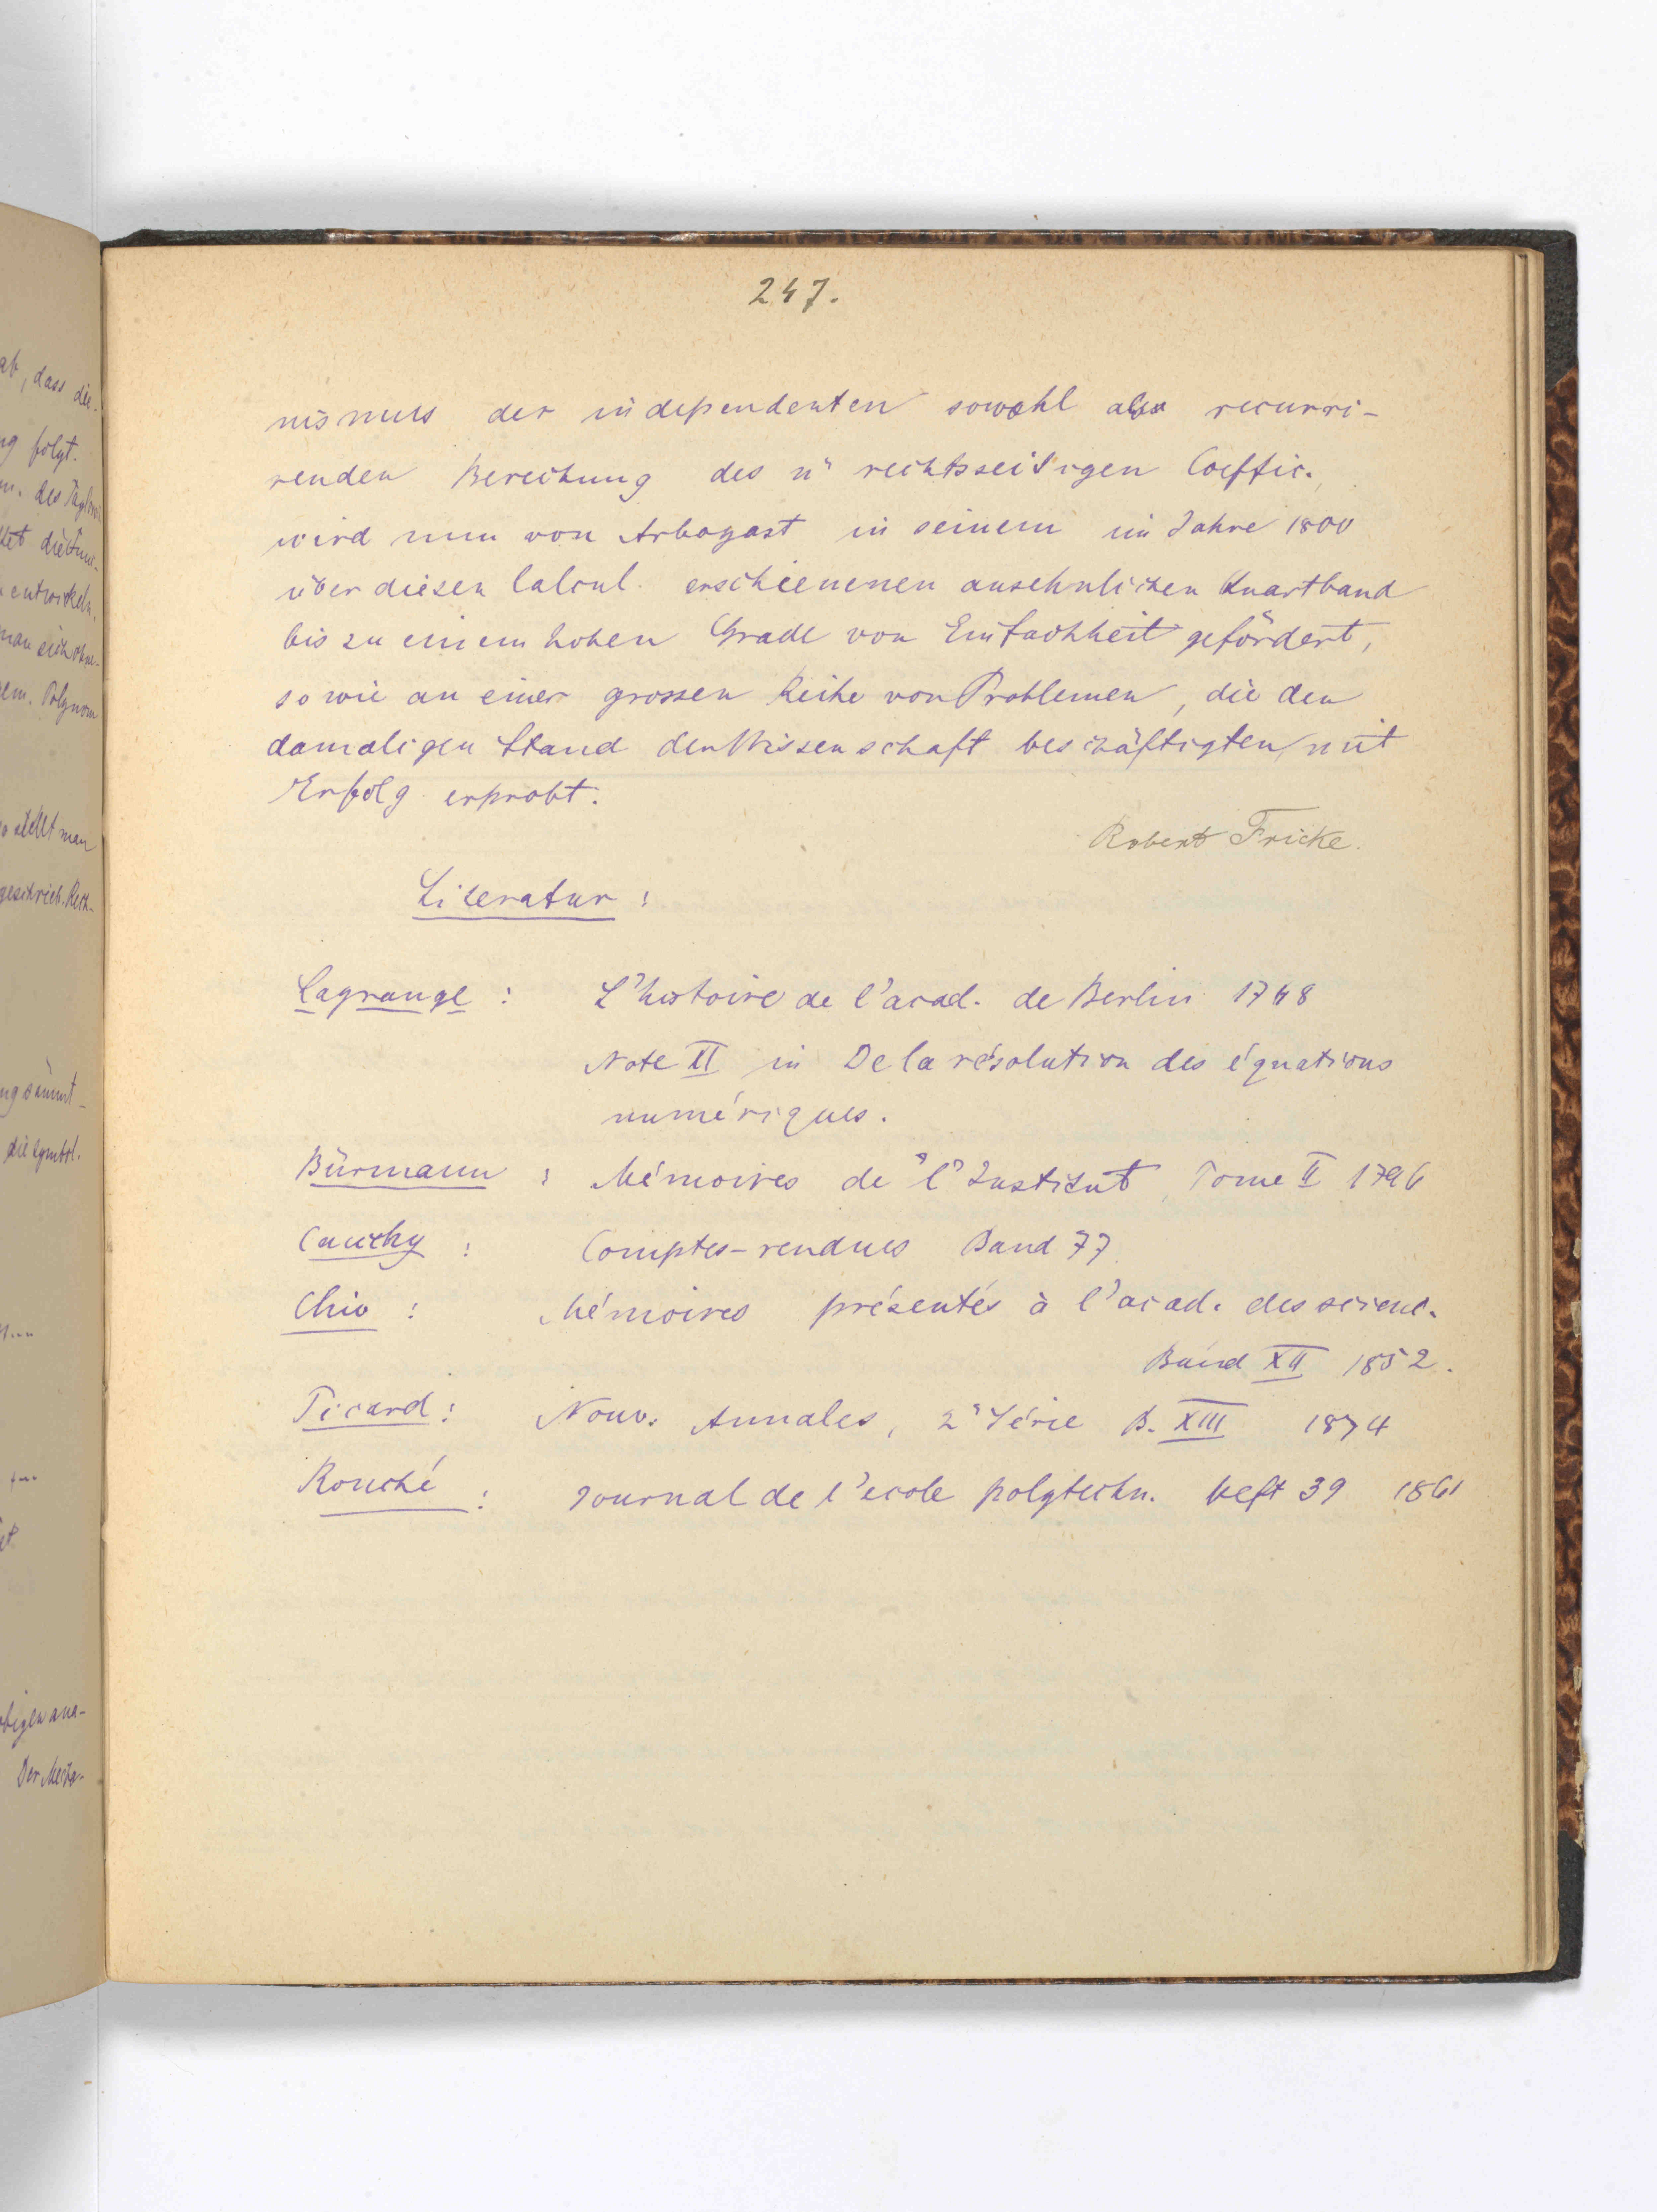 247.
nismus der independenten sowohl als recurri-
renden Berechung des nⁿ rechtsseitigen Coeffic.,
wird nun von Arbogast in seinem im Jahre 1800
über diesen Calcul. erschienenen ansehnlichen Quartband
bis zu einem hohen Grade von Einfachheit gefördert,
sowie an einer grossen Reihe von Problemen, die den
damaligen Stand der Wissenschaft beschäftigten, mit
Erfolg erprobt.
Robert Fricke.
Literatur:
Lagrange: L'histoire de l'acad. de Berlin 1768
Note XI in De la résolution des équations
numériques.
Bürmann: Mémoires de l'Institut, Tome II 1796
Cauchy: Comptes-rendues Band 77.
Chio: Mémoires présentés à l'acad. des scienc.
Band XII 1852.
Picard: Nouv. Annales, 2e Série B. XIII 1874
Rouché: Journal de l'ecole polytechn. Heft 39 1861
ab, dass die-
ng folgt.
entwickeln,
Polynom
so stellt man
geschrieb. Rech-
die symbol.
obigen ana-
Der Mecha-